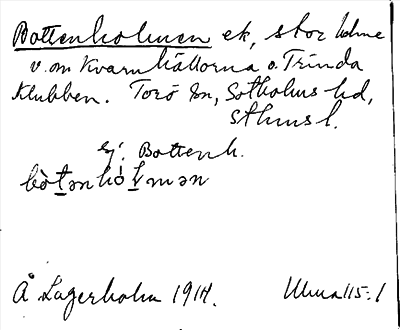 Bottenholmen ek, stor holme
v. om Kvarnhällorna o. Trinda
Klubben. Torö sn, Sotholms hd,
Sthms l.
ej: Bottenh.
bòtənhòlmən
Å Lagerholm 1914.